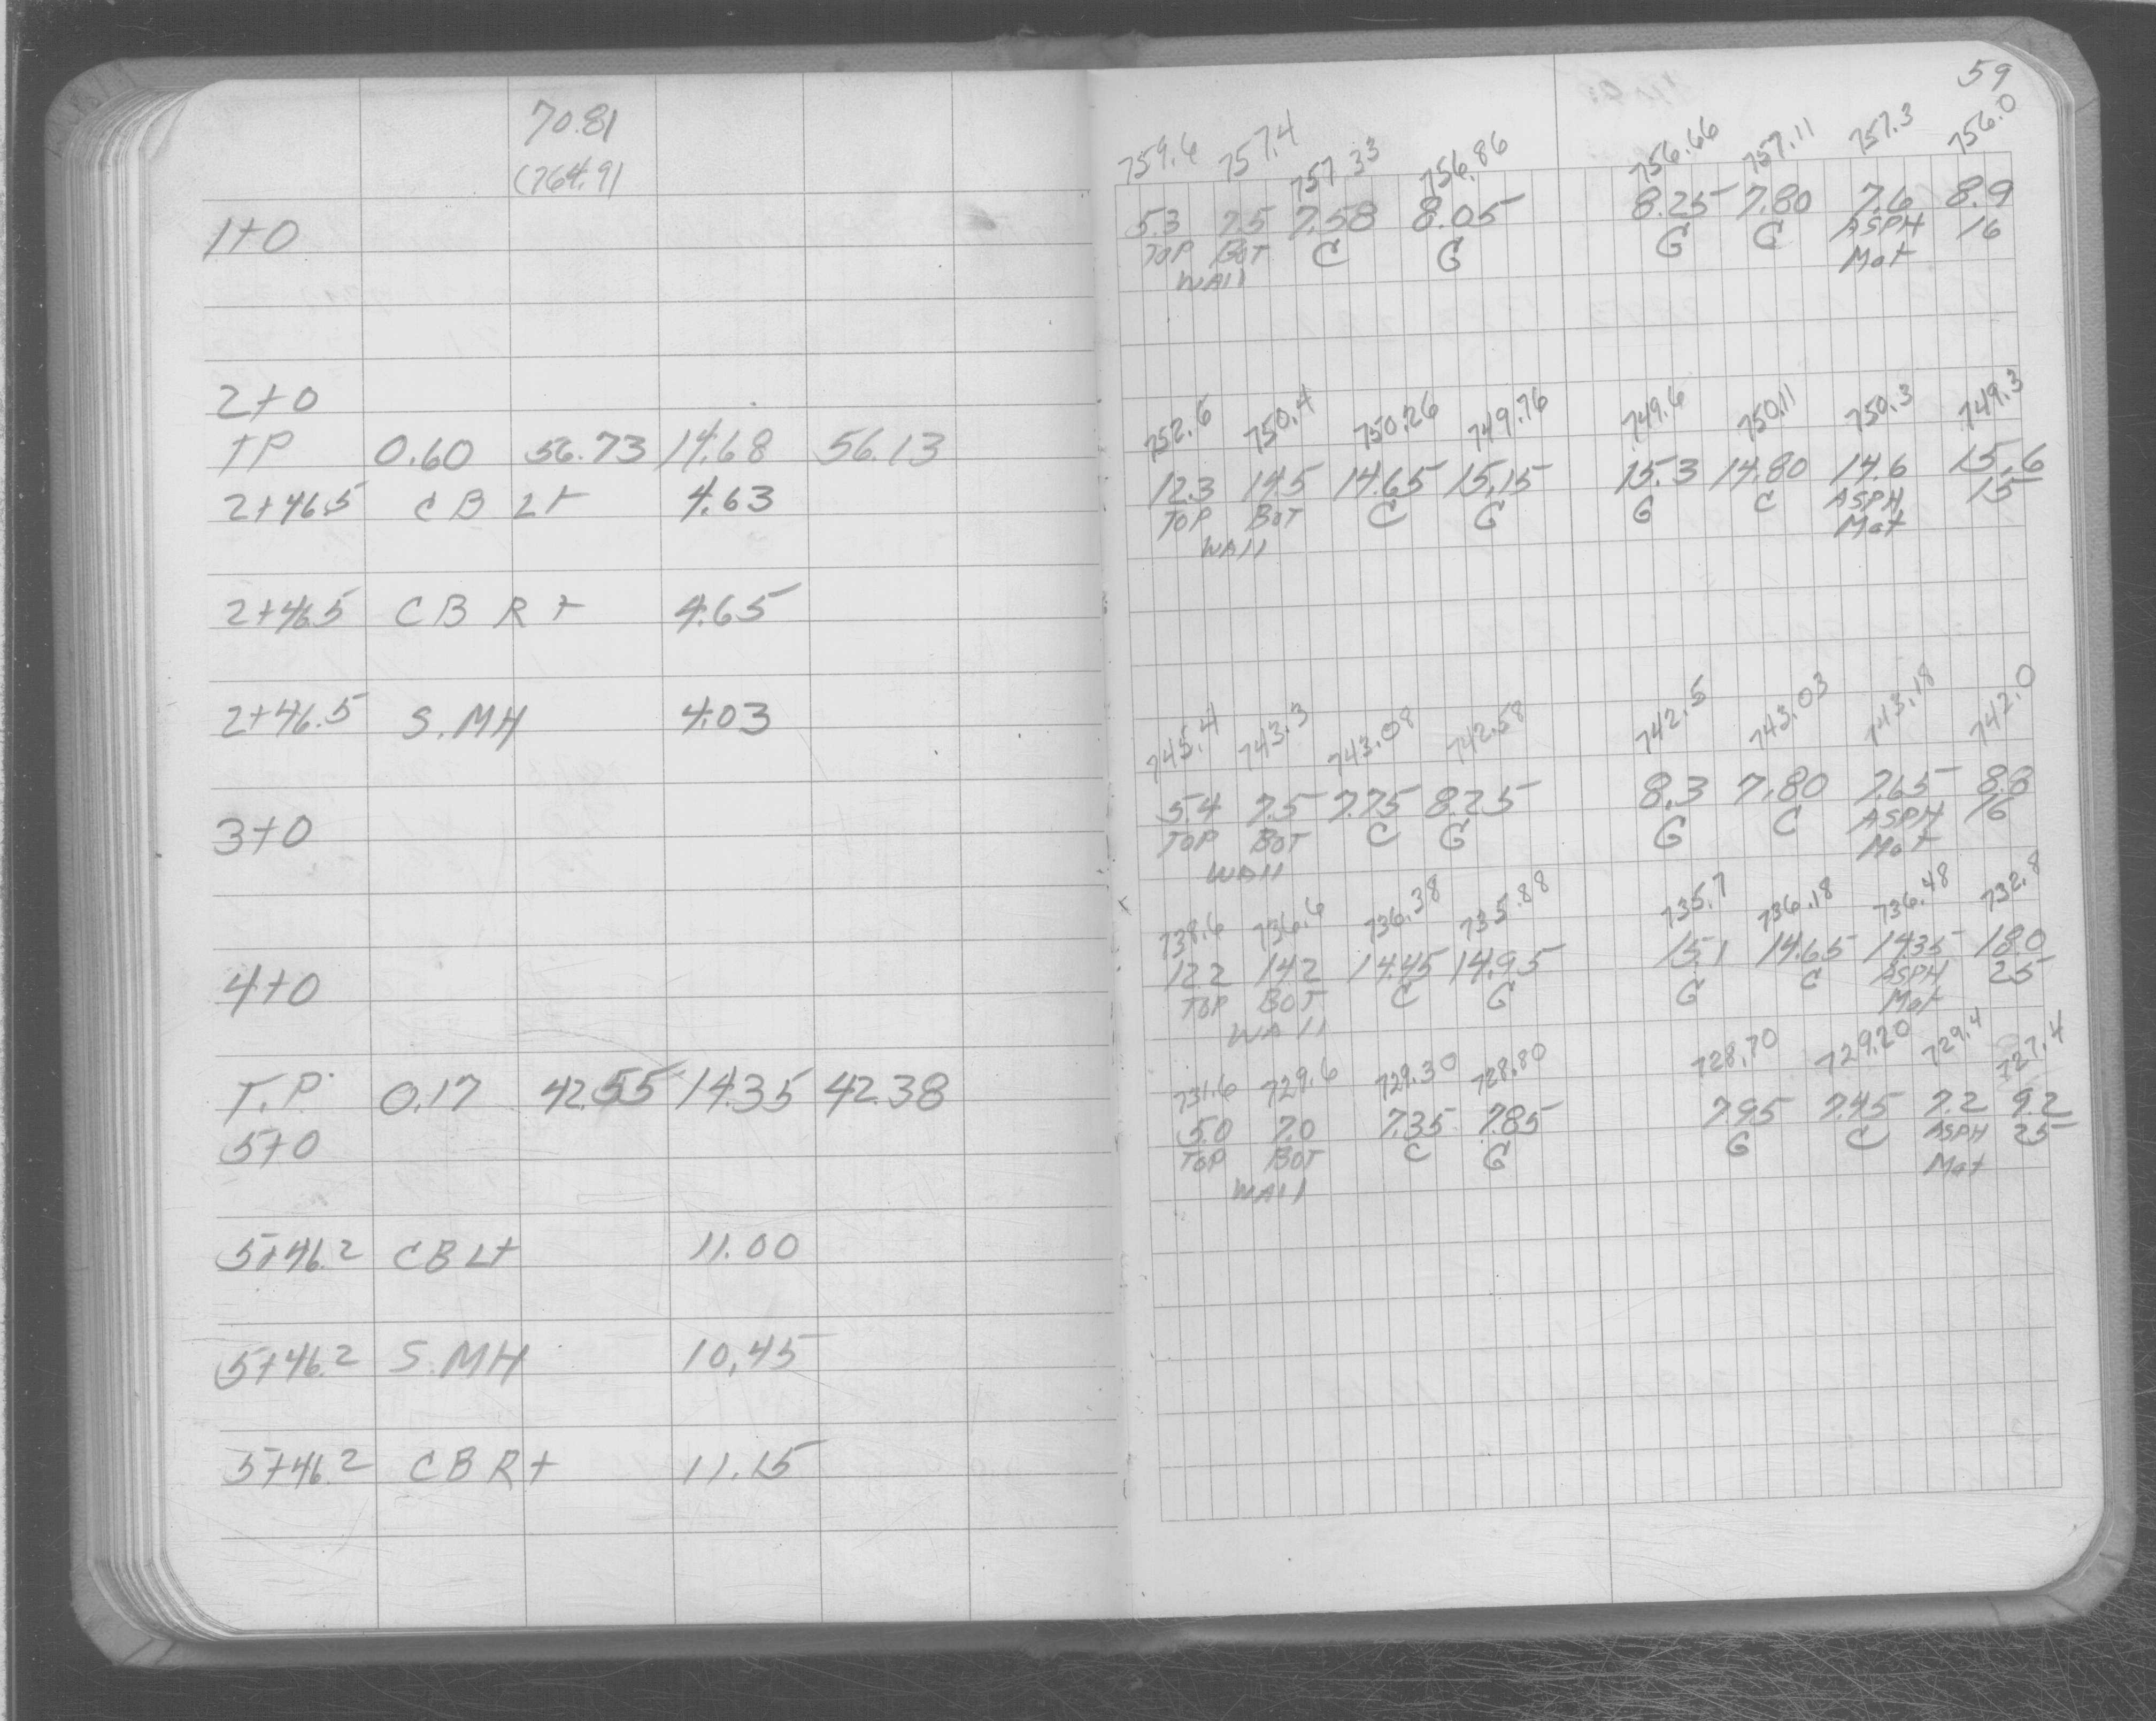 70.81
(764.91
1+0
2+0
TP 0.60 56.73 14.68 56.13
2+46.5 CB Lt 4.63
2+46.5 CB Rt 4.65
2+46.5 S.MH 4.03
3+0
4+0
T.P. 0.17 42.55 14.35 42.38
5+0
5+46.2 CB Lt 11.00
5+46.2 S.MH 10.45
5+46.2 CB Rt 11.15
59
759.6 757.4 757.33 756.86 756.66 757.11 757.3 756.0
5.3 7.5 7.58 8.05 8.25 7.80 7.6 8.9
TOP BOT C G G C ASPH 16
WAll Mat
752.6 750.4 750.26 749.76 749.6 750.11 750.3 749.3
12.3 14.5 14.65 15.15 15.3 14.80 14.6 15.6
TOP BOT C G G C ASPH 15
WAll Mat
745.4 743.3 743.08 742.58 742.5 743.03 743.18 742.0
5.4 7.5 7.75 8.25 8.3 7.80 7.65 8.8
TOP BOT C G G C ASPH 16
WAll Mat
738.6 736.6 736.38 735.88 735.7 736.18 736.48 732.8
12.2 14.2 14.45 14.95 15.1 14.65 14.35 18.0
TOP BOT C G G C ASPH 25
WAll Mat
731.6 729.6 729.30 728.80 728.70 729.20 729.4 727.4
5.0 7.0 7.35 7.85 7.95 7.45 7.2 9.2
TOP BOT C G G C ASPH 25
WAll Mat